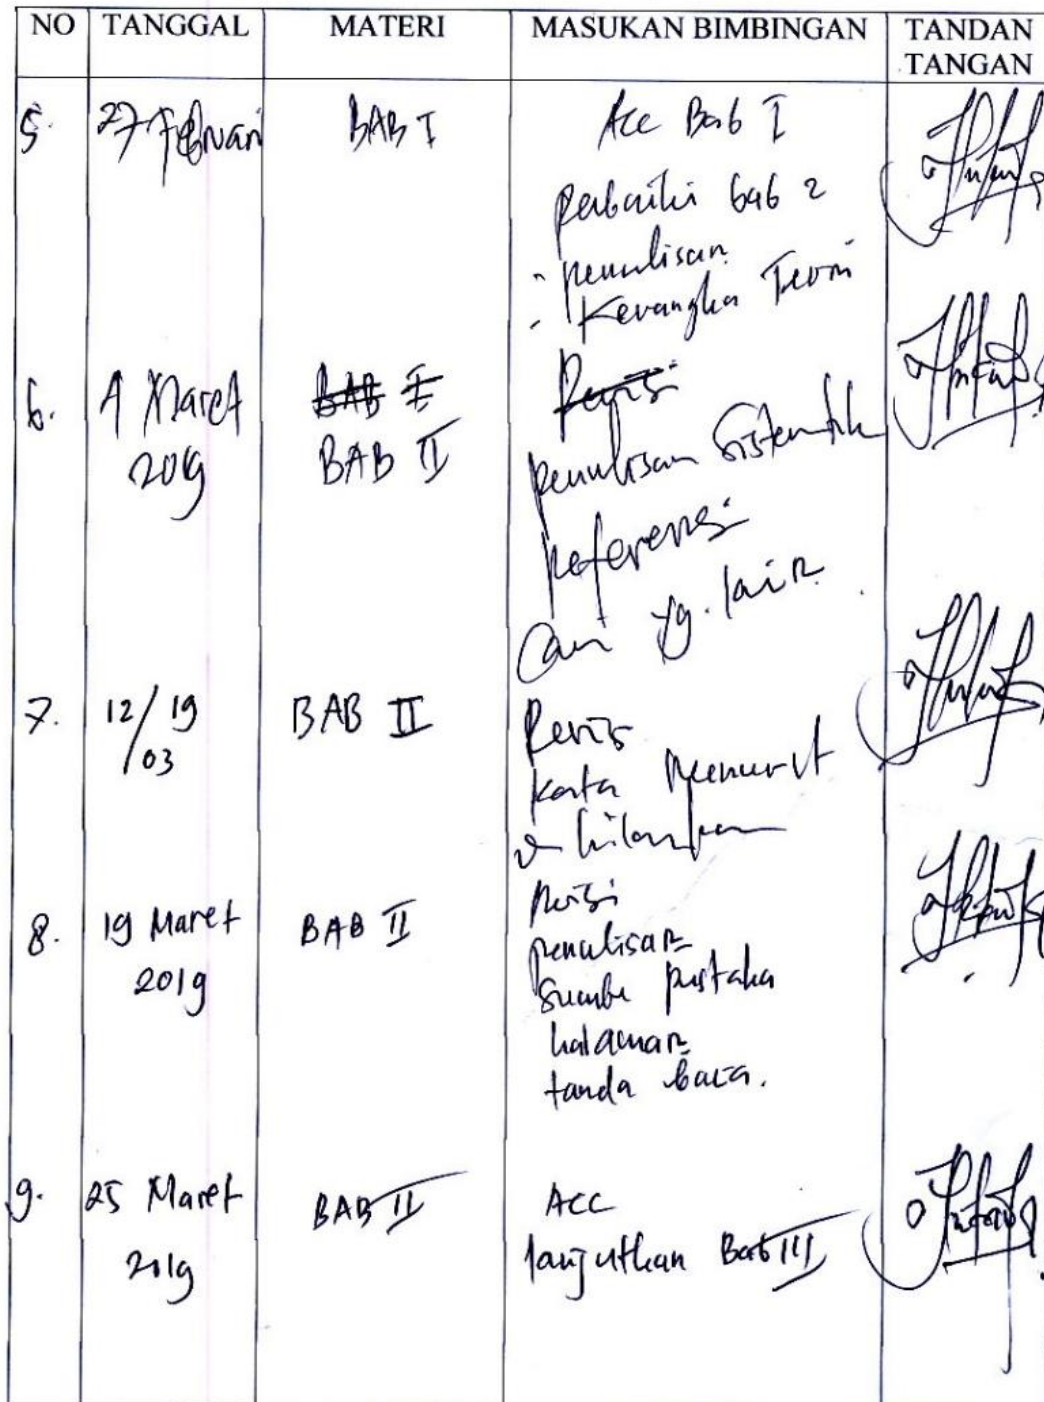 NO TANGGAL MATERI MASUKAN BIMBINGAN TANDAN TANGAN
5. 27 Februari BAB I Acc Bab I
Perbaiki bab 2
- penulisan
- Kerangka Teori
6. 4 Maret BAB I Revisi
2019 BAB II penulisan Sistematik
referensi
Cari yg. lain
7. 12/03 19 BAB II Revisi
kata Menurut
di hilangkan
8. 19 Maret BAB II Revisi
2019 penulisan
Sumber pustaka
halaman
tanda baca.
9. 25 Maret BAB II ACC
2019 lanjutkan Bab III